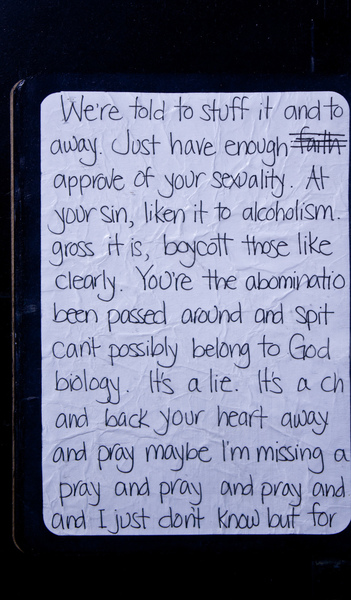 We're told to stuff it and to
away. Just have enough faith
approve of your sexuality. At
your sin, liken it to alcoholism.
gross it is, boycott those like
clearly. You're the abominatio
been passed around and spit
cant possibly belong to God
biology. It's a lie. It's a ch
and back your heart away
and pray maybe I'm missing a
pray and pray and pray and
and I just don't know but for